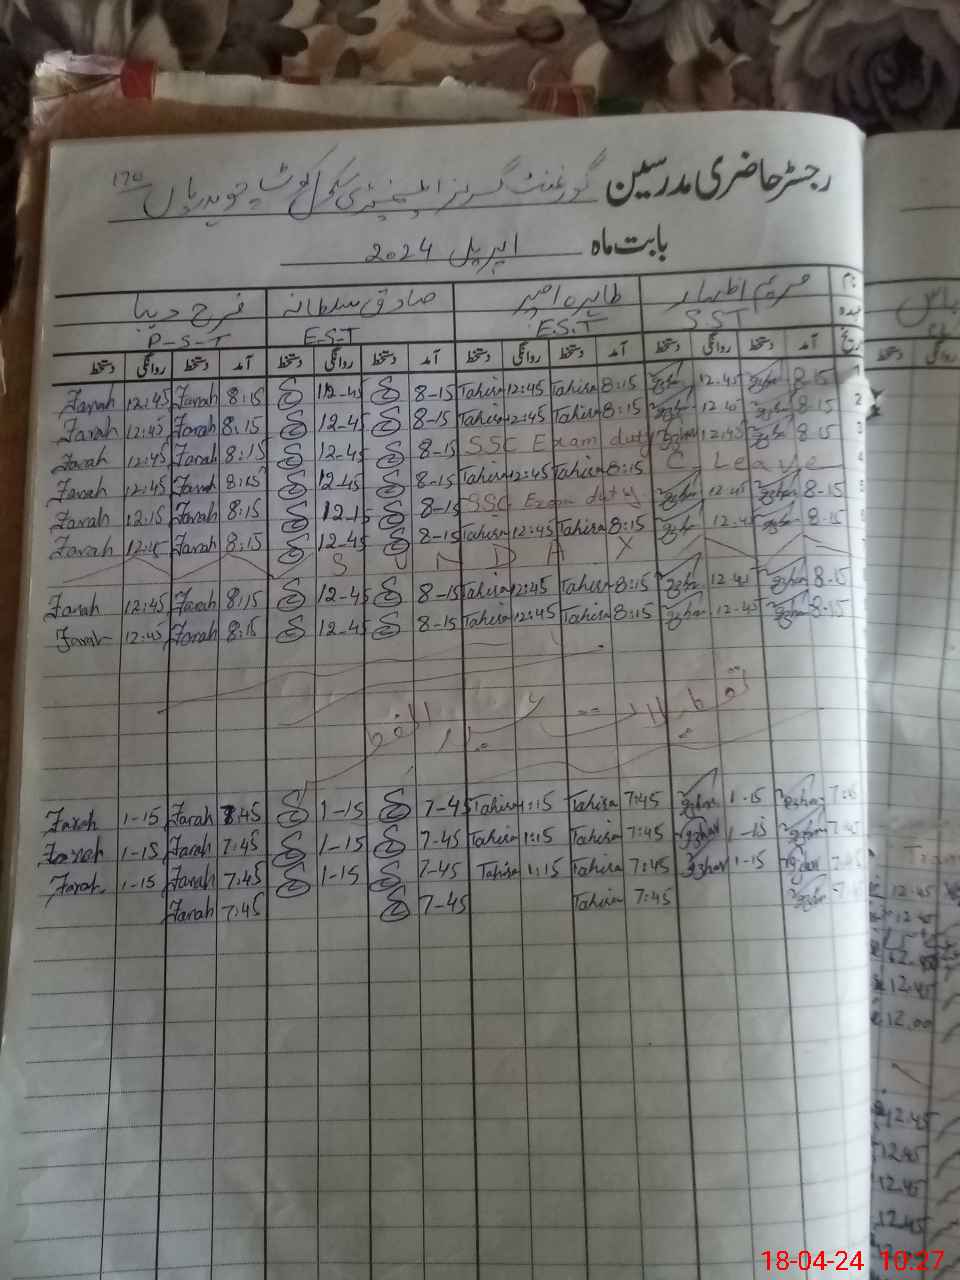 رجسٹر حاضری مدرسین گورنمنٹ گرلز ایلیمنٹری سکول کوٹ
بابت ماہ اپریل 2024
نام مریم اظہار طاہرہ صادق سلطانہ فرح دیبا
عہدہ S.ST E.S.T E-S-T P-S-T
تاریخ آمد دستخط روانگی دستخط آمد دستخط روانگی دستخط آمد دستخط روانگی دستخط آمد دستخط روانگی دستخط
Farah 12:45 Farah 8:15 12-45 8-15 Tahira 12:45 Tahira 8:15 12-45 8-15
Farah 12:45 Farah 8:15 12-45 8-15 Tahira 12:45 Tahira 8:15 12-45 8-15 2
Farah 12:45 Farah 8:15 12-45 8-15 SSC Exam duty 12:45 8-15 3
Farah 12:45 Farah 8:15 12-45 8-15 Tahira 12:45 Tahira 8:15 C Leave 4
Farah 12:15 Farah 8:15 12-15 8-15 SSC Exam duty 12-45 8-15 5
Farah 12:45 Farah 8:15 12-45 8-15 Tahira 12:45 Tahira 8:15 12-45 8-15
S U N D A Y
Farah 12:45 Farah 8:15 12-45 8-15 Tahira 12:45 Tahira 8:15 12-45 8-15
Farah 12:45 Farah 8:15 12-45 8-15 Tahira 12:45 Tahira 8:15 12-45 8-15
تعطیلات عید الفطر
Farah 1-15 Farah 7:45 1-15 7-45 Tahira 1:15 Tahira 7:45 1-15 7:45
Farah 1-15 Farah 7:45 1-15 7-45 Tahira 1:15 Tahira 7:45 1-15 7-45
Farah 1-15 Farah 7:45 1-15 7-45 Tahira 1:15 Tahira 7:45 1-15 7:45
Farah 7:45 7-45 Tahira 7:45
روانگی دستخط
12:45
12:45
12.45
12.00
12.45
12.45
12.45
12.45
18-04-24 10:27